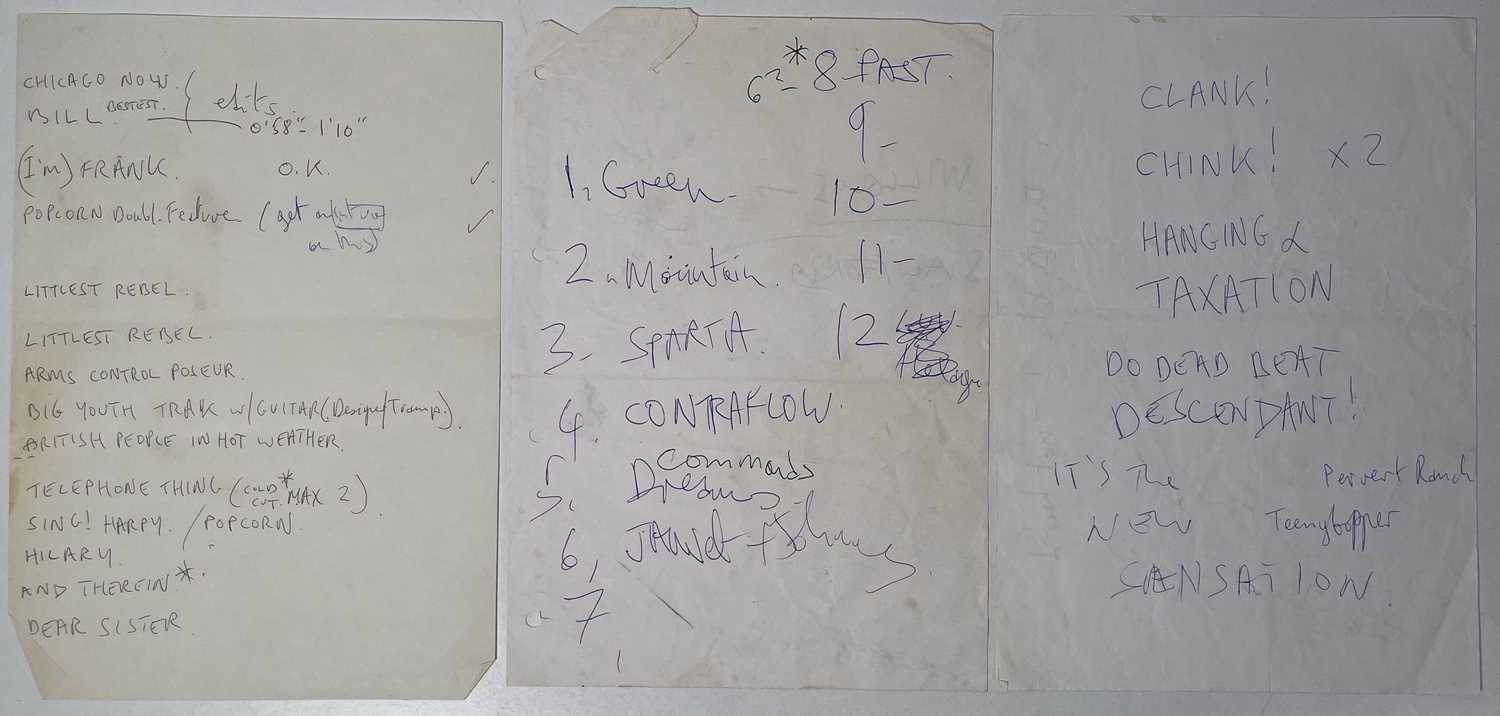 CHICAGO NOW.
BILL BESTEST. edits
0'58" - 1'10"
(I'm) FRANK. O.K. ✓.
POPCORN Doubl. Feature (get ✓
on this)
LITTLEST REBEL.
LITTLEST REBEL.
ARMS CONTROL POSEUR.
BIG YOUTH TRAK W/GUITAR (Design/Tramp.).
BRITISH PEOPLE IN HOT WEATHER.
TELEPHONE THING (COLD CUT.* MAX 2).
SING! HARPY. / POPCORN.
HILARY.
AND THEREIN*.
DEAR SISTER.
* 8 PAST.
9 -
1, Green - 10 -
2 Mountain. 11 -
3 - SPARTA. 12
4. CONTRAFLOW.
5. Commands
Dreams -
6, JANet + Johnny.
7
CLANK!
CHINK! X 2
HANGING &
TAXATION
DO DEAD BEAT
DESCENDANT!
IT'S The Pervert Ranch
NEW Teenybopper
SANSATION.